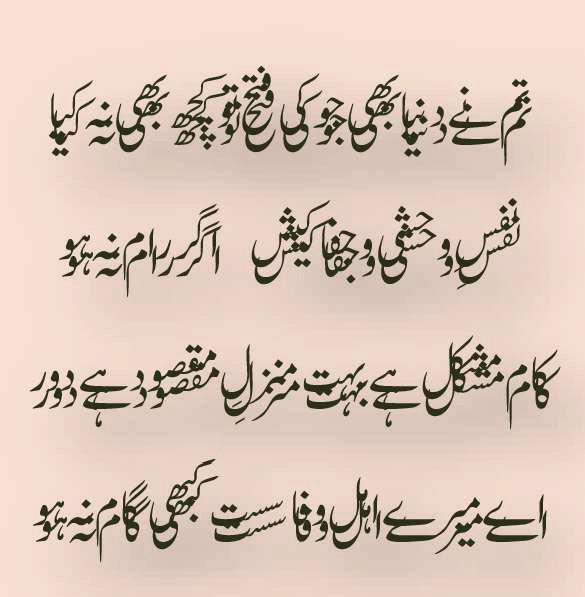 تم نے دنیا بھی جو کی فتح تو کچھ بھی نہ کیا
نفسِ و حشی و جفا کیش اگر رام نہ ہو
کام مشکل ہے بہت منزلِ مقصود ہے دور
اے میرے اہل وفا سست کبھی گام نہ ہو